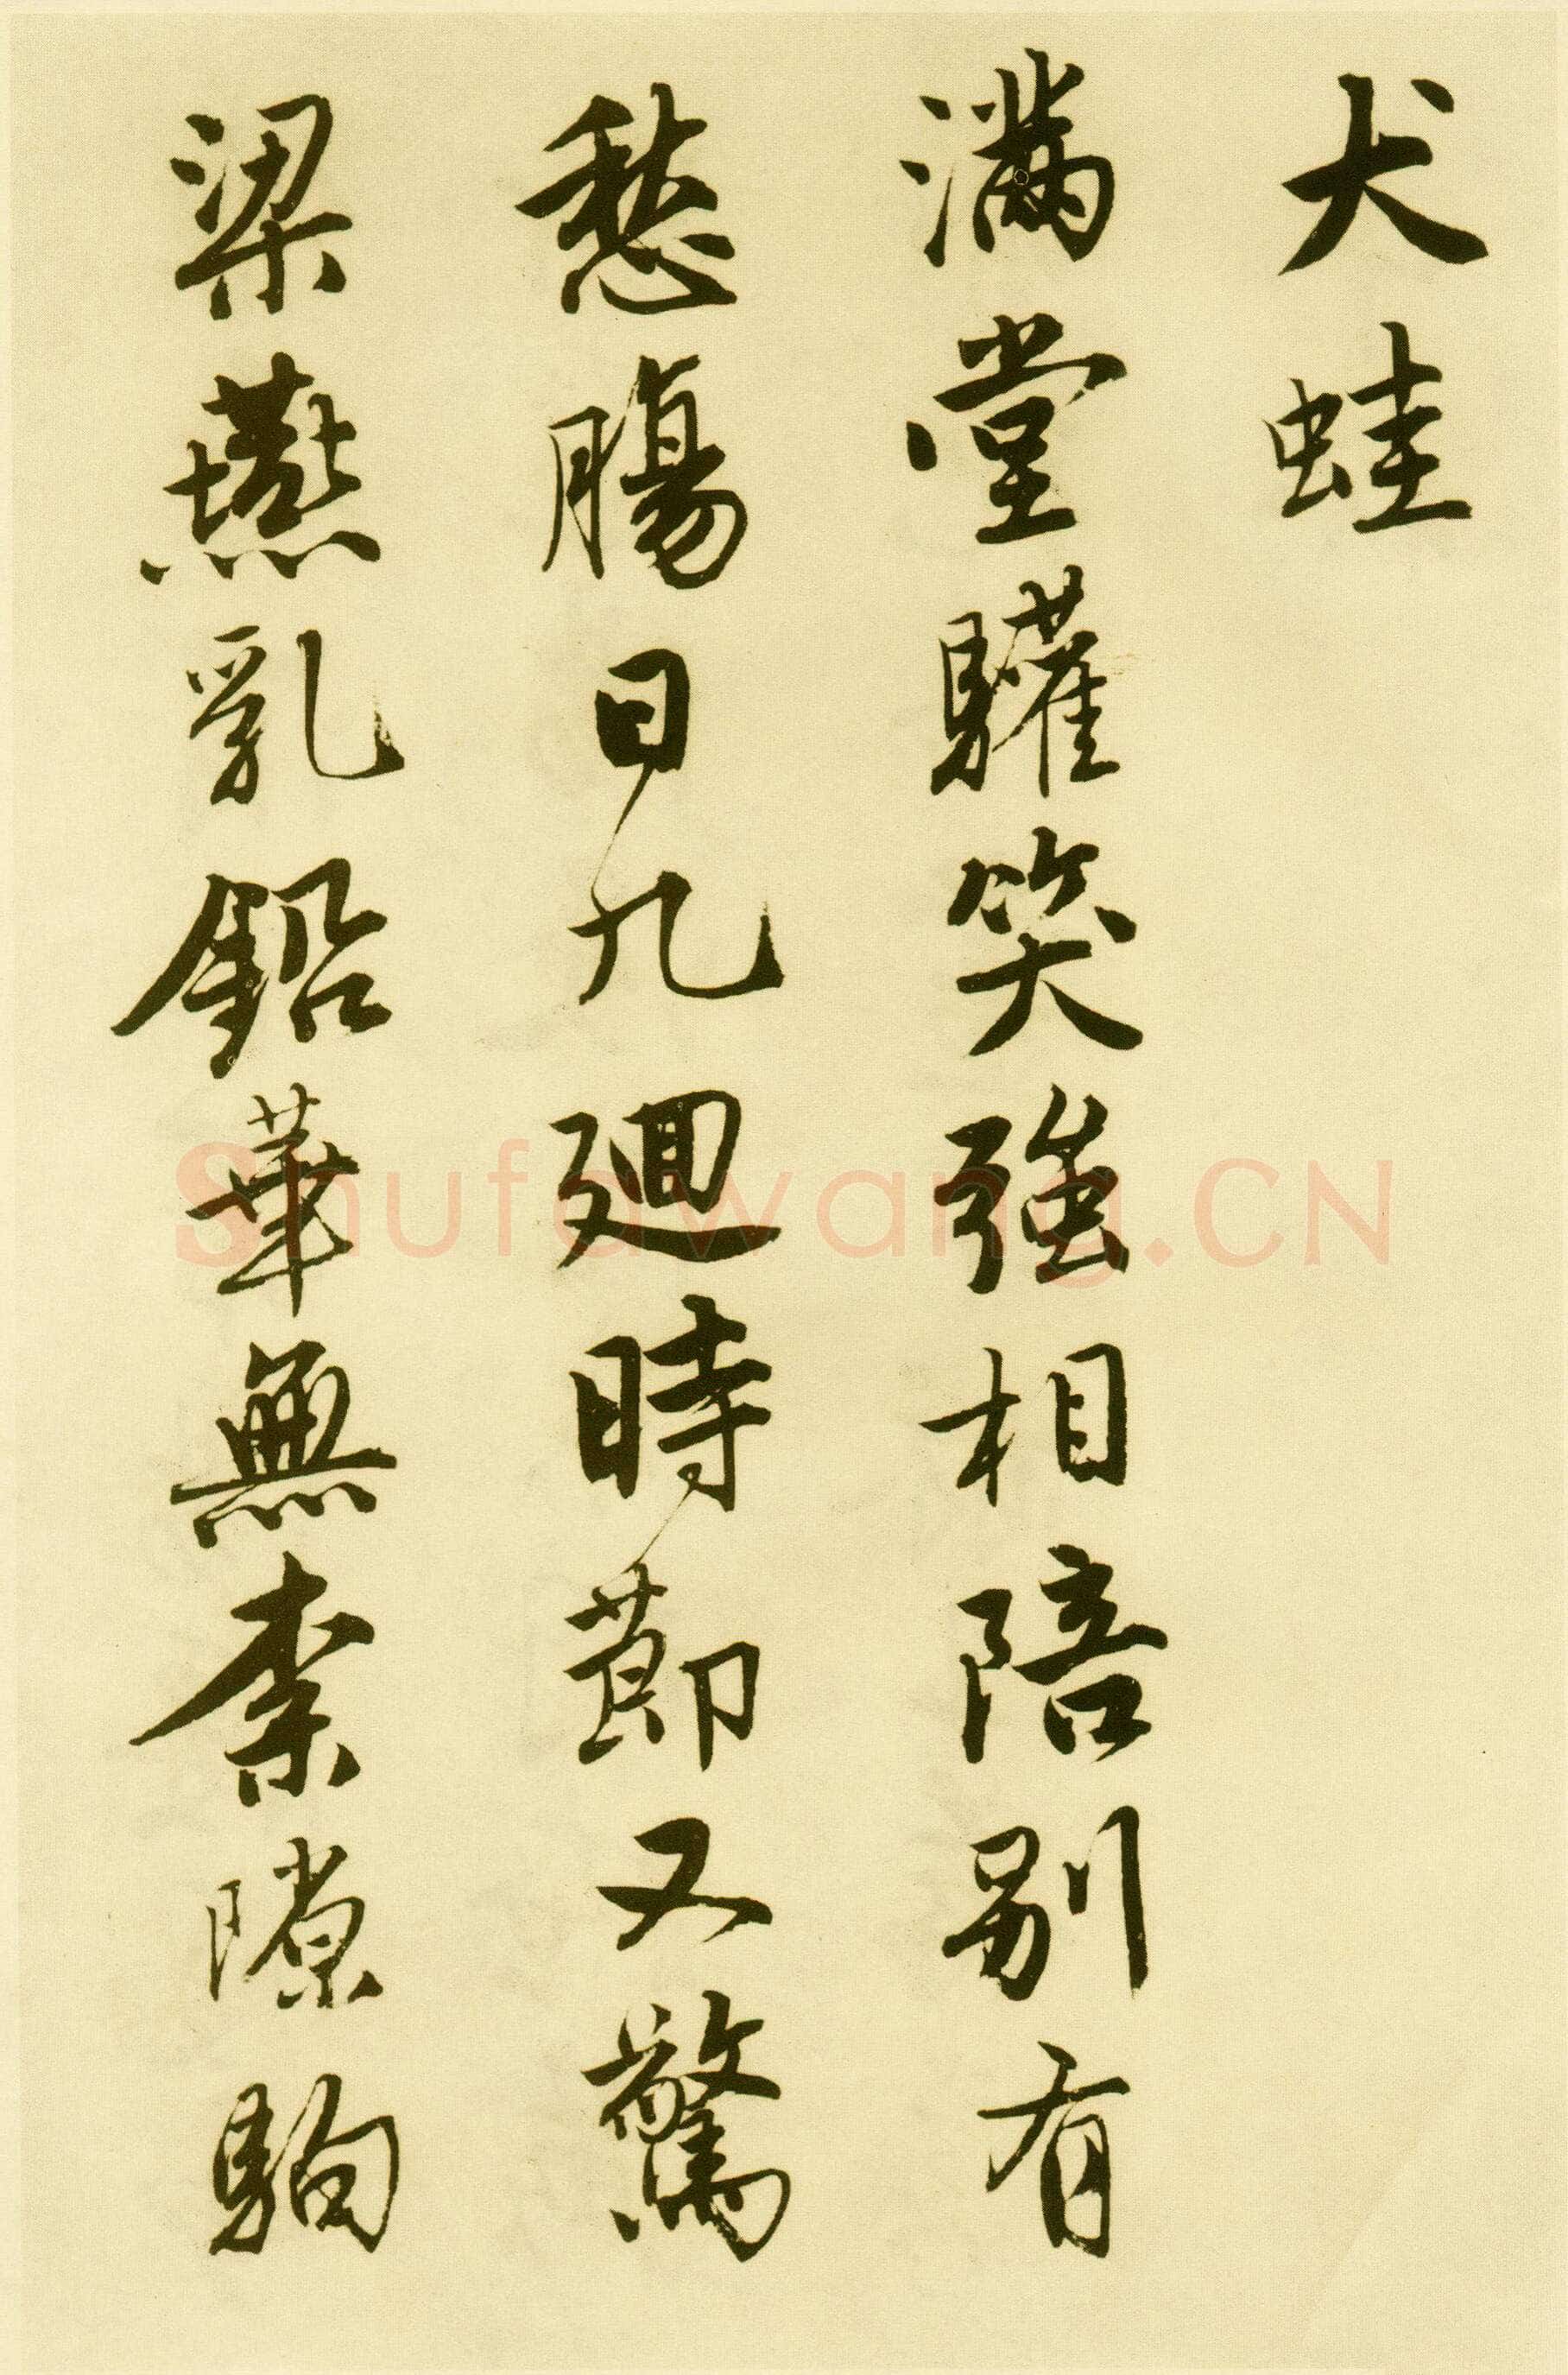 犬蛙
滿堂驩笑強相陪別有
愁腸日九迴時節又驚
梁燕乳鉛華無柰隙駒
Shufawang.CN